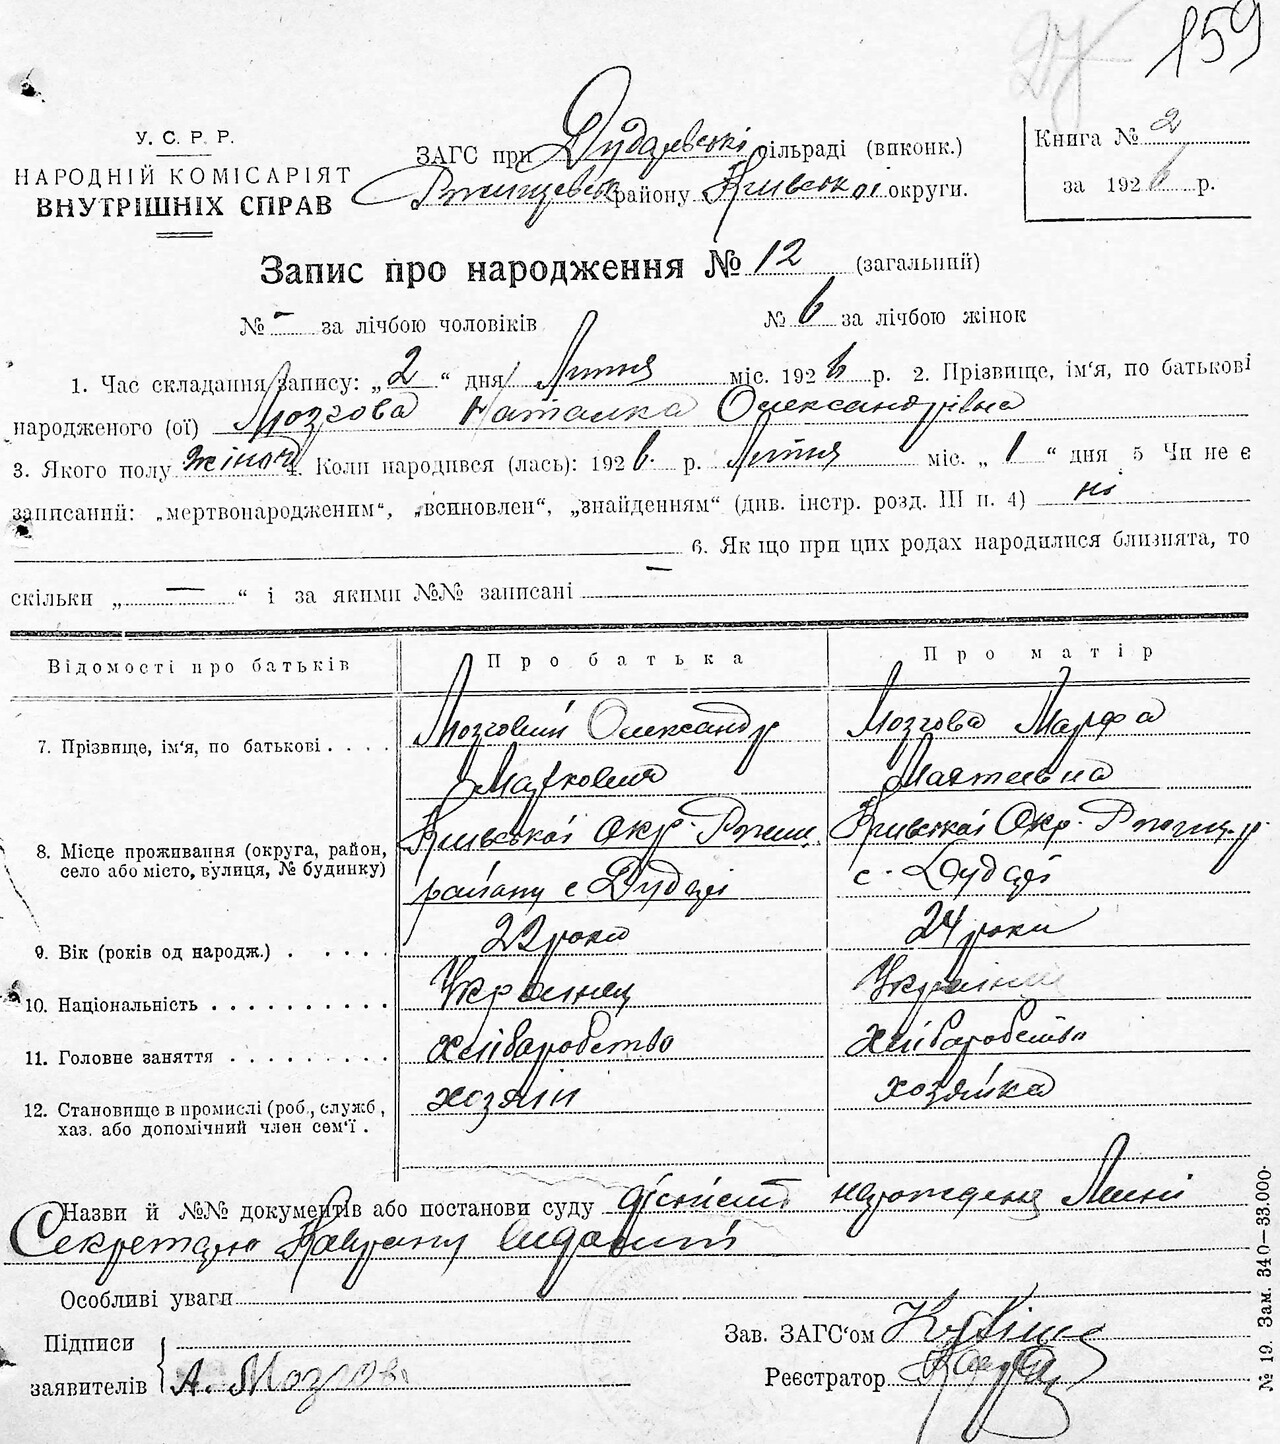 159
У. С. Р. Р.
НАРОДНІЙ КОМІСАРІЯТ
ВНУТРІШНІХ СПРАВ
ЗАГС при сільраді (виконк.)
району Київської округи.
Книга № 2
за 1926 р.
Запис про народження № 12 (загальний)
№ - за лічбою чоловіків № 6 за лічбою жінок
1. Час складання запису: „2“ дня Лютня міс. 1926 р. 2. Прізвище, ім'я, по батькові
народженого (ої) Мозгова Наталка Олександрівна
3. Якого полу жіноч 4. Коли народився (лась): 1926 р. Лютня міс. „1“ дня 5 Чи не є
записаний: „мертвонародженим“, „всиновлен“, „знайденям“ (див. інстр. розд. III п. 4) ні
6. Як що при цих родах народилися близнята, то
скільки „—“ і за якими №№ записані —
Відомості про батьків Про батька Про матір
7. Прізвище, ім'я, по батькові . . . . Мозговий Олександр Мозгова Марфа
Маркович Матвіївна
8. Місце проживання (округа, район, село або місто, вулиця, № будинку) Київської Окр. Ржищ. Київської Окр. Ржищ. р.
району с Дудці с. Дудці
9. Вік (років од народж.) . . . . . 22 роки 24 роки
10. Національність . . . . . . . . . . Українец Українка
11. Головне заняття . . . . . . . . . хліборобство хліборобство
12. Становище в промислі (роб., служб, хаз. або допомічний член сем'ї . хозяін хозяйка
Назви й №№ документів або постанови суду
Секретарю
Особливі уваги
Підписи
заявителів А. Мозгов
Зав. ЗАГС'ом
Реєстратор
№ 19. Зам. 340—33.000.